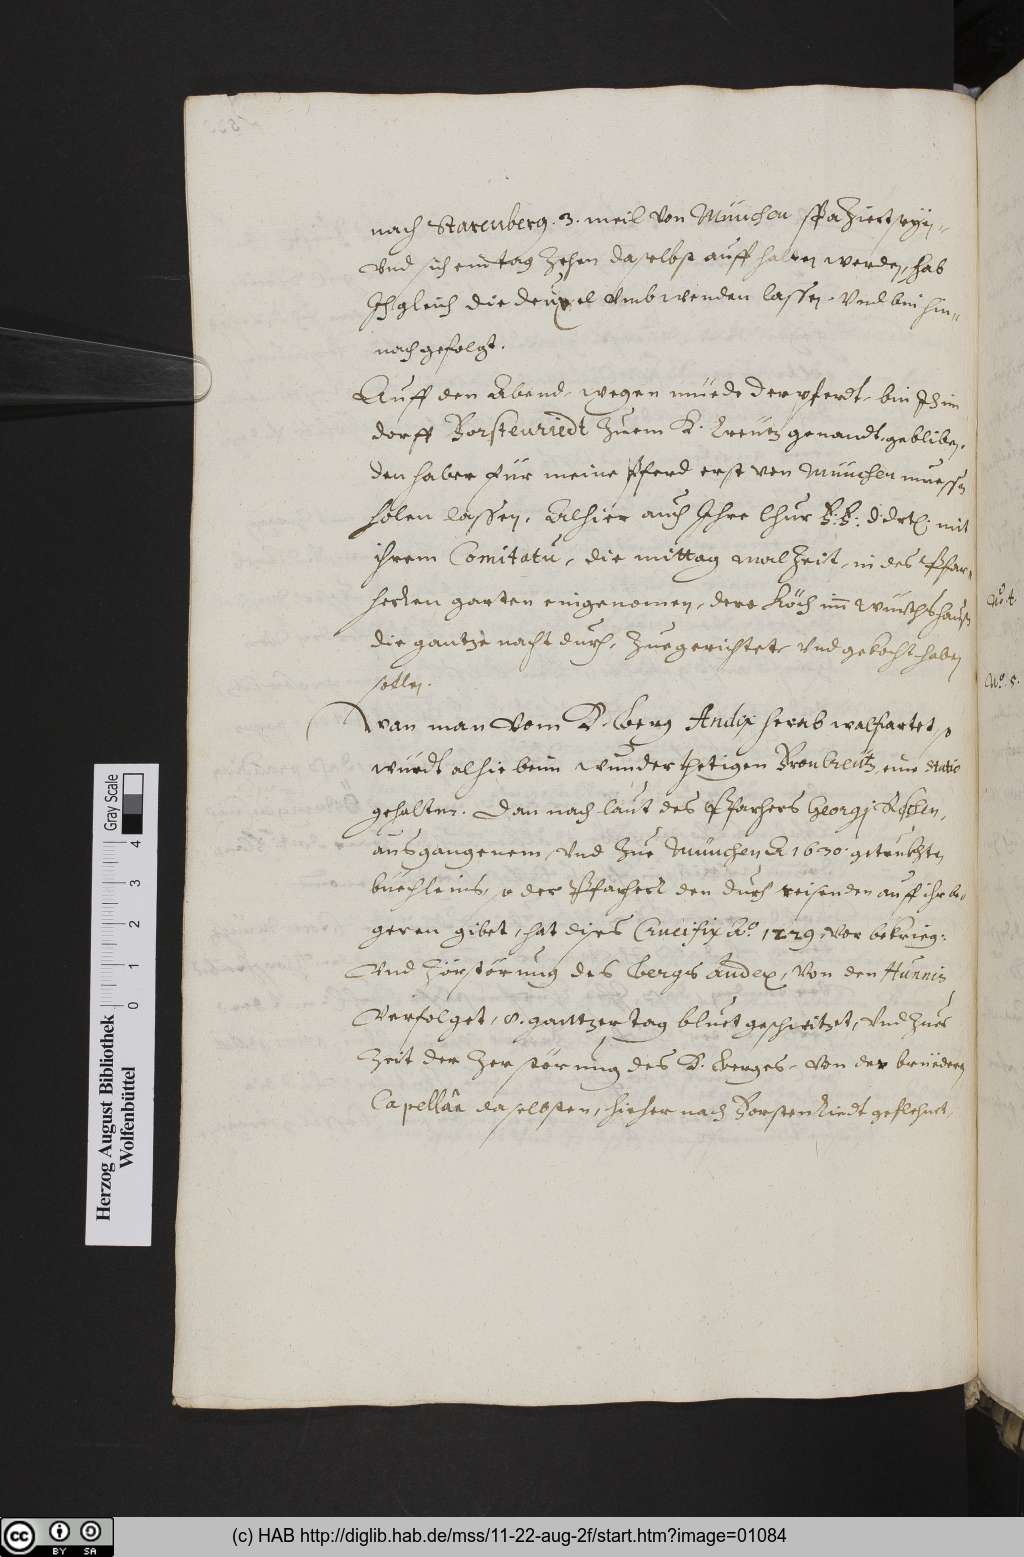 nach Starenberg. 3. meil von München spaziert seÿ,,
vnd sich ein tag zehen daselbst auffhalten werden, hab
Ich gleich die deüxel vmbwenden lassen. Vnd bin hin,,
nach gefolgt.
Auff den Abend, wegen müede der pferdt, bin Ich im
dorff Forstenriedt zuem H. Creütz genandt, gebliben,
den haber für meine Pferd erst von München muessen
holen lassen, Alhier auch Ihre Chur F: F: Ddrl: mit
ihrem Comitatu, die mittag malzeit, in des Pfar,,
herren garten eingenomen, dero Köch im würthshauß
die gantze nacht durch, zuegerichtet vnd gekocht haben
sollen.
Wan man vom H. Berg Andex herab walfartet, so
würdt alhie beim wunderthetigen FronCreütz, eine statio
gehalten. Dan nach laut des Pfarhers Georgij
ausgangenem, vnd zue München A 1630. getruckhten
buechleins, so der Pfarherr den durch reisenden auff ihr be,,
geren gibet, hat dises Crucifix Ao. 1229 vor bekrieg:
Vnd zörstörung des bergs Andex, von den Hunnis
verfolget, 8. gantzer tag bluet geschwitzet, vnd zuer
Zeit der zerstörung des H. Berges, von der brüedern
Capellan daselbsten, hieher nach Forstenriedt geflehnet,
No. 4.
No. 5.
Herzog August Bibliothek
Wolfenbüttel
Gray Scale
0 1 2 3 4
CC BY SA
(c) HAB http://diglib.hab.de/mss/11-22-aug-2f/start.htm?image=01084